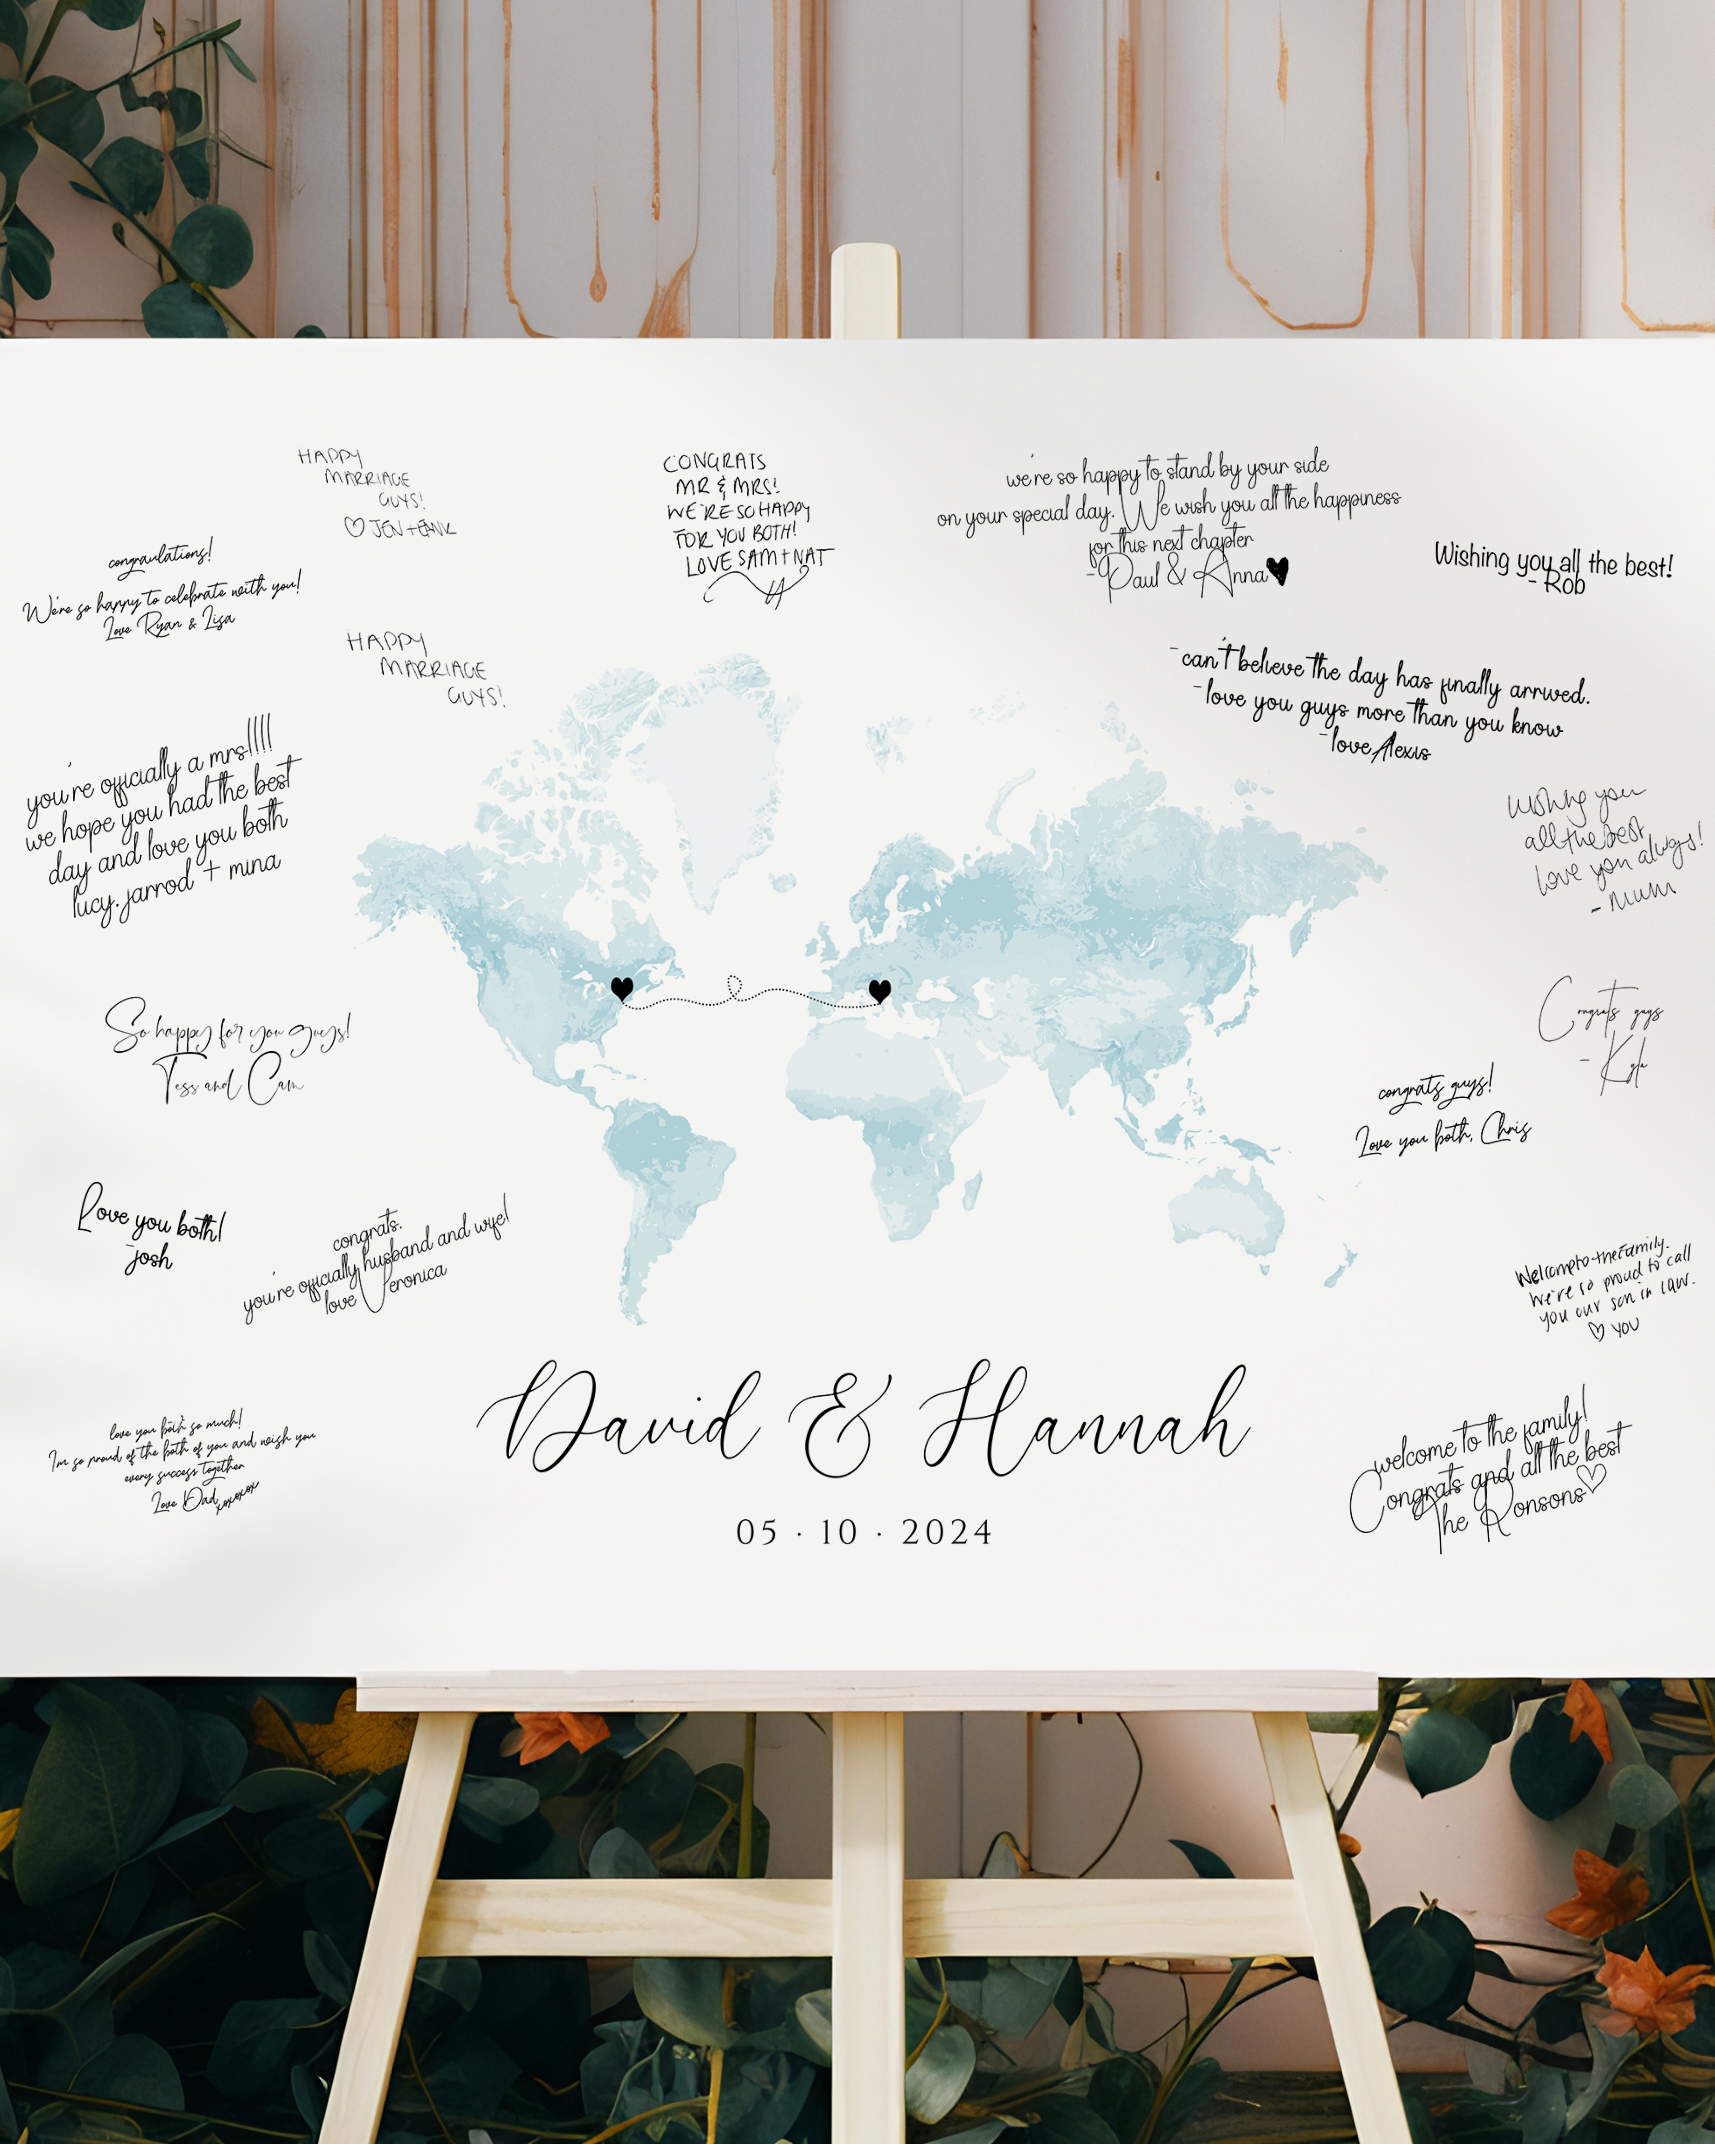 HAPPY
MARRIAGE
GUYS!
♡ JEN + FRANK
CONGRATS
MR & MRS!
WE'RE SO HAPPY
FOR YOU BOTH!
LOVE SAM + NAT
we're so happy to stand by your side
on your special day. We wish you all the happiness
for this next chapter
- Paul & Anna♥
Wishing you all the best!
- Rob
congraulations!
We're so happy to celebrate with you!
Love Ryan & Lisa
HAPPY
MARRIAGE
GUYS!
-can't believe the day has finally arrived.
-love you guys more than you know
-love Alexis
you're officially a mrs!!!!
we hope you had the best
day and love you both
lucy, jarrod + mina
wishing you
all the best
love you always!
- mum
So happy for you guys!
Tess and Cam
Congrats guys
- Kyla
congrats guys!
Love you both, Chris
Love you both!
-josh
congrats.
you're officially husband and wife!
love Veronica
Welcome to the family.
We're so proud to call
you our son in law.
♡ YOU
David & Hannah
05 · 10 · 2024
love you both so much!
I'm so proud of the both of you and wish you
every success together
Love Dad xoxoxox
welcome to the family!
Congrats and all the best
The Ronsons♡